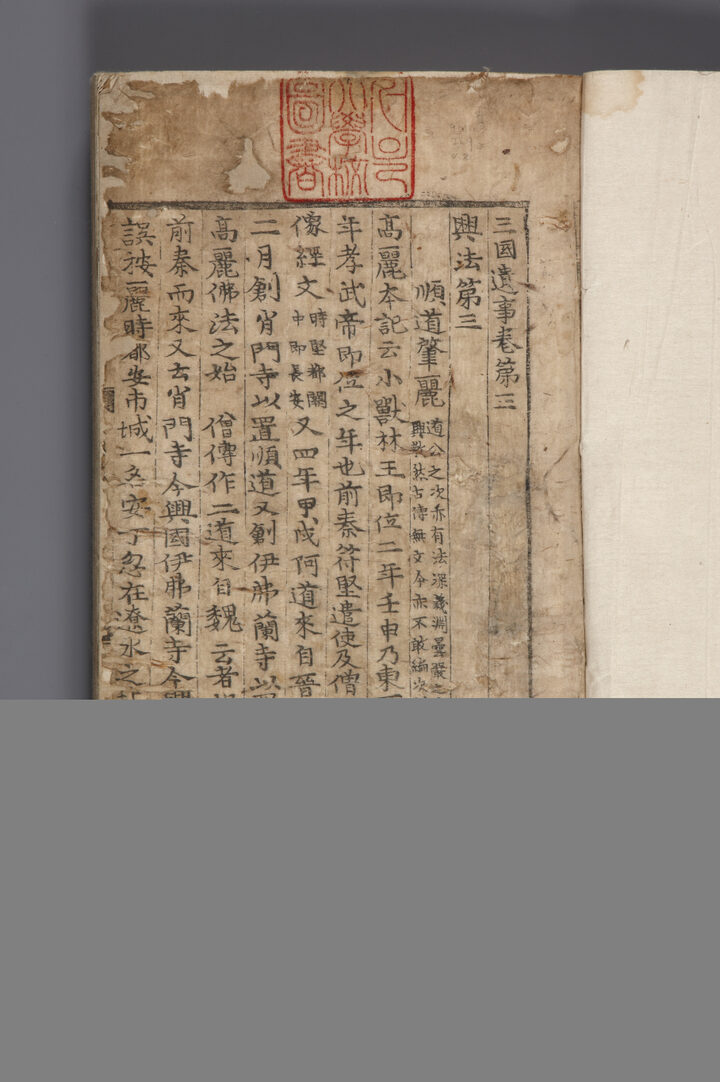 大學校
圖書
三國遺事卷第三
興法第三
順道肇麗 道公之次亦有法深義淵曇嚴之
興敎然古傳無文今亦不敢編次
高麗本記云小獸林王即位二年壬申乃東
年孝武帝即位之年也前秦符堅遣使及僧
像經文 時堅都關 中即長安 又四年甲戌阿道來自晉
二月創肖門寺以置順道又創伊弗蘭寺以
高麗佛法之始 僧傳作二道來自魏云者
前秦而來又云肖門寺今興國伊弗蘭寺今
誤按麗時都安市城一名安丁忽在遼水之